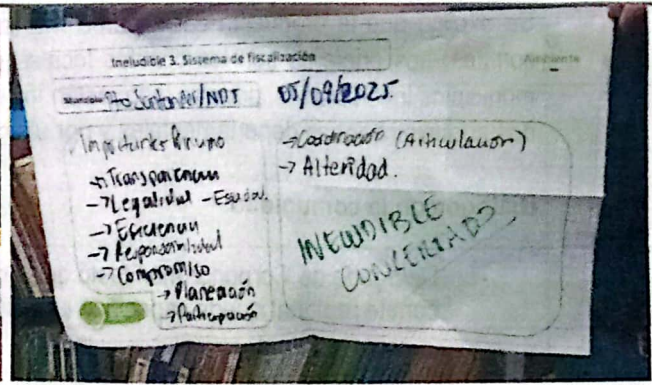 Ineludible 3. Sistema de fiscalización
Ambiente
Municipio Pto Santander/NDS 05/09/2025.
Importantes
→ Transparencia
→ Legalidad - Estado
→ Eficiencia
→ Responsabilidad
→ Compromiso
→ Planeación
→ Participación
→ Coordinación (Articulación)
→ Alteridad.
INELUDIBLE
CONCERTADO